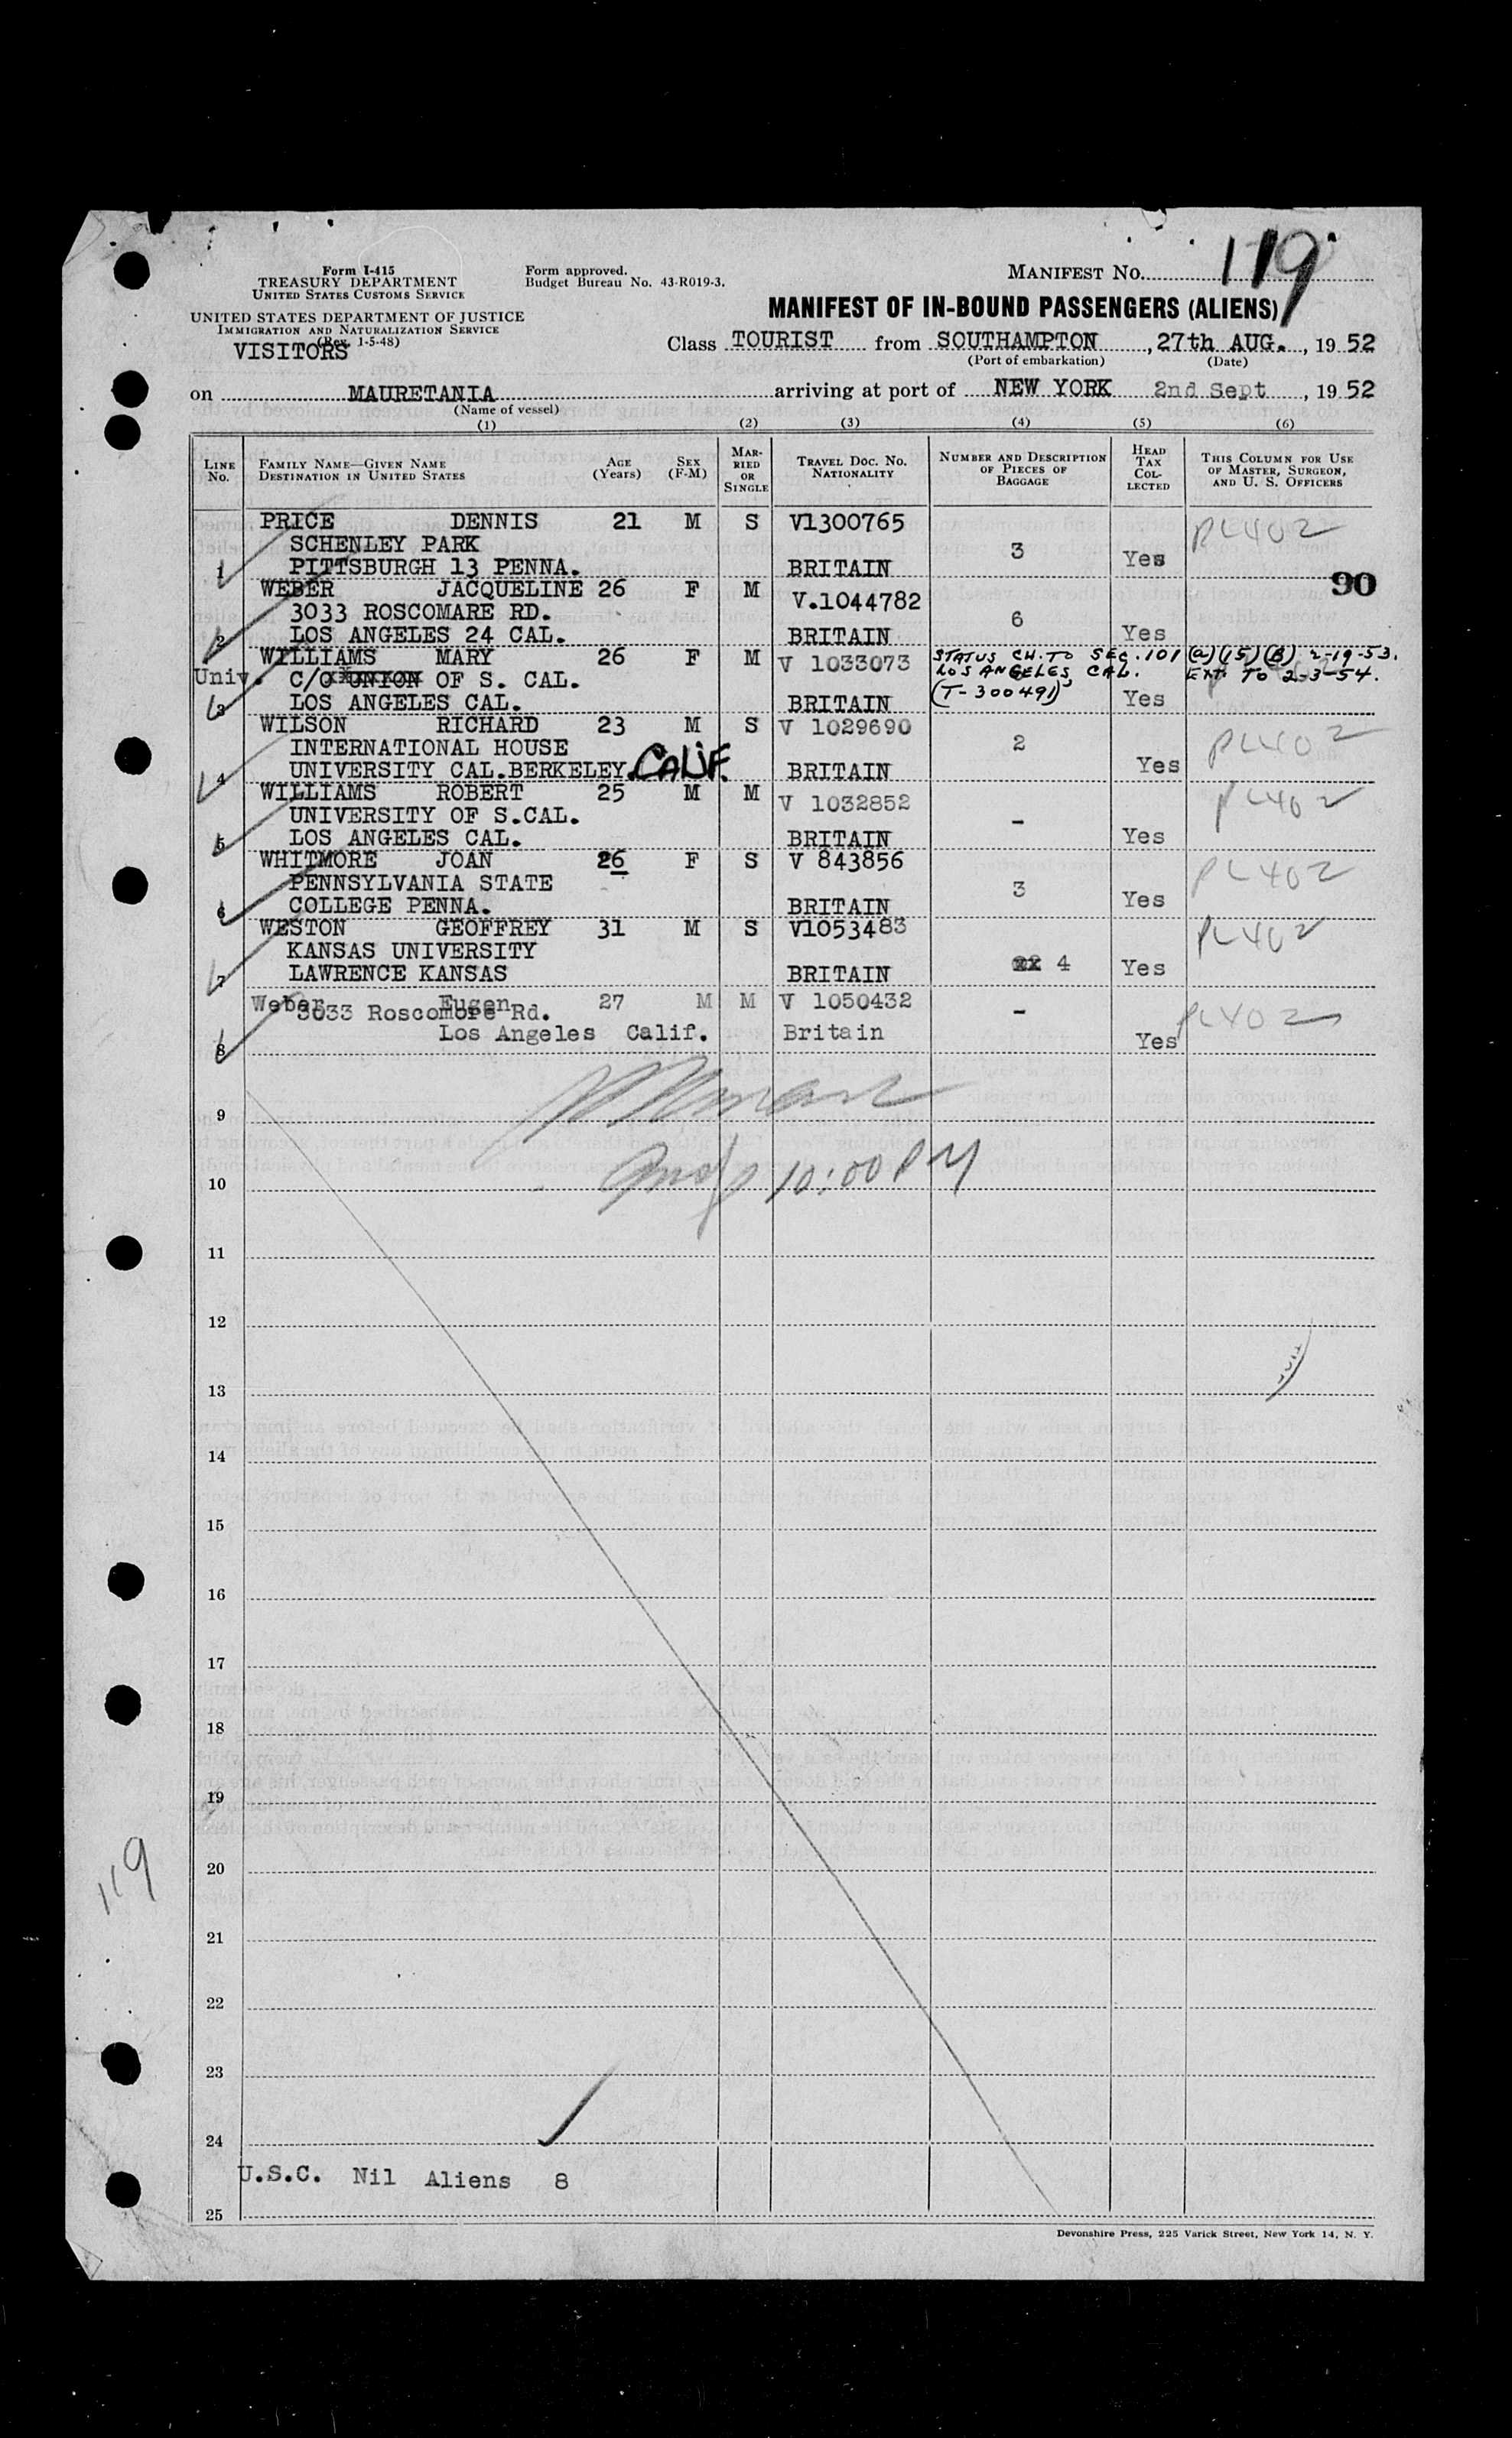 Form I-415
TREASURY DEPARTMENT
UNITED STATES CUSTOMS SERVICE
UNITED STATES DEPARTMENT OF JUSTICE
IMMIGRATION AND NATURALIZATION SERVICE
(Rev. 1-5-48)
VISITORS
Form approved.
Budget Bureau No. 43-R019-3.
MANIFEST NO. 119
MANIFEST OF IN-BOUND PASSENGERS (ALIENS)
Class TOURIST from SOUTHAMPTON, 27th AUG., 19 52
(Port of embarkation) (Date)
on MAURETANIA arriving at port of NEW YORK 2nd Sept, 19 52
(Name of vessel)
(1) (2) (3) (4) (5) (6)
LINE NO. FAMILY NAME—GIVEN NAME DESTINATION IN UNITED STATES AGE (YEARS) SEX (F-M) MARRIED OR SINGLE TRAVEL DOC. NO. NATIONALITY NUMBER AND DESCRIPTION OF PIECES OF BAGGAGE HEAD TAX COLLECTED THIS COLUMN FOR USE OF MASTER, SURGEON, AND U. S. OFFICERS
PRICE DENNIS 21 M S V1300765 PL402
SCHENLEY PARK 3 Yes
1 PITTSBURGH 13 PENNA. BRITAIN
90
WEBER JACQUELINE 26 F M V.1044782
3033 ROSCOMARE RD. 6
2 LOS ANGELES 24 CAL. BRITAIN Yes
WILLIAMS MARY 26 F M V 1033073 STATUS CH. TO SEC. 101 (a)(15)(B) 2-19-53.
Univ. C/O UNION OF S. CAL. LOS ANGELES, CAL. EXT. TO 2-3-54.
3 LOS ANGELES CAL. BRITAIN (T-300491) Yes
WILSON RICHARD 23 M S V 1029690 PL402
INTERNATIONAL HOUSE 2
4 UNIVERSITY CAL.BERKELEY. CALIF. BRITAIN Yes
WILLIAMS ROBERT 25 M M V 1032852 PL402
UNIVERSITY OF S.CAL. -
5 LOS ANGELES CAL. BRITAIN Yes
WHITMORE JOAN 26 F S V 843856 PL402
PENNSYLVANIA STATE 3
6 COLLEGE PENNA. BRITAIN Yes
WESTON GEOFFREY 31 M S V1053483 PL402
KANSAS UNIVERSITY
7 LAWRENCE KANSAS BRITAIN 4 Yes
Weber Eugen 27 M M V 1050432 PL402
3033 Roscomore Rd. -
8 Los Angeles Calif. Britain Yes
9
10 10:00 PM
11
12
13
14
15
16
17
18
19
119
20
21
22
23
24
U.S.C. Nil Aliens 8
25
Devonshire Press, 225 Varick Street, New York 14, N. Y.